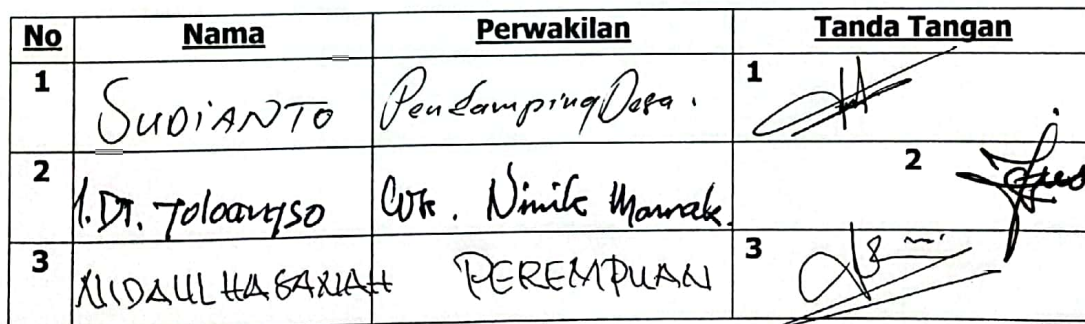 No Nama Perwakilan Tanda Tangan
1 SUDIANTO Pendamping Desa. 1
2 Ninik Mamak. 2
3 NIDAUL HASANAH PEREMPUAN 3